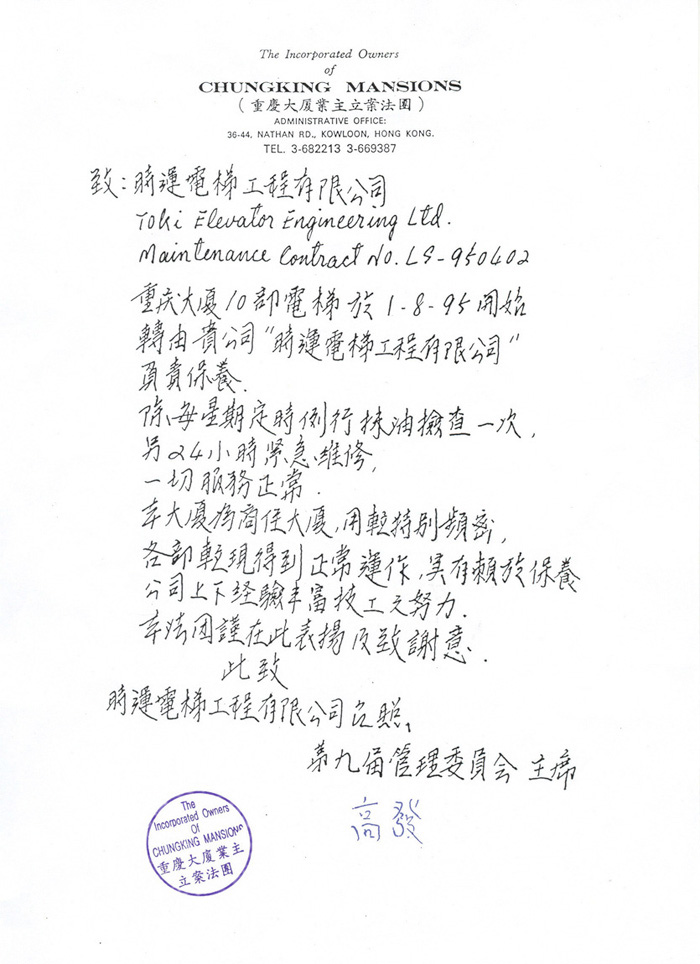 The Incorporated Owners
of
CHUNGKING MANSIONS
(重慶大廈業主立案法團)
ADMINISTRATIVE OFFICE:
36-44, NATHAN RD., KOWLOON, HONG KONG.
TEL. 3-682213 3-669387
致:時運電梯工程有限公司
Toki Elevator Engineering Ltd.
Maintenance Contract No. LS-950402
重庆大廈10部電梯於1-8-95開始
轉由貴公司"時運電梯工程有限公司"
負責保養.
除每星期定時例行抹油檢查一次,
另24小時緊急維修,
一切服務正常.
本大廈為商住大廈,用𨋢特別頻密,
各部𨋢現得到正常運作,実有賴於保養
公司上下经驗丰富技工之努力.
本法团謹在此表揚及致謝意.
此致
時運電梯工程有限公司台照,
第九屆管理委員会主席
高發
The
Incorporated Owners
Of
CHUNGKING MANSIONS
重慶大廈業主
立案法團